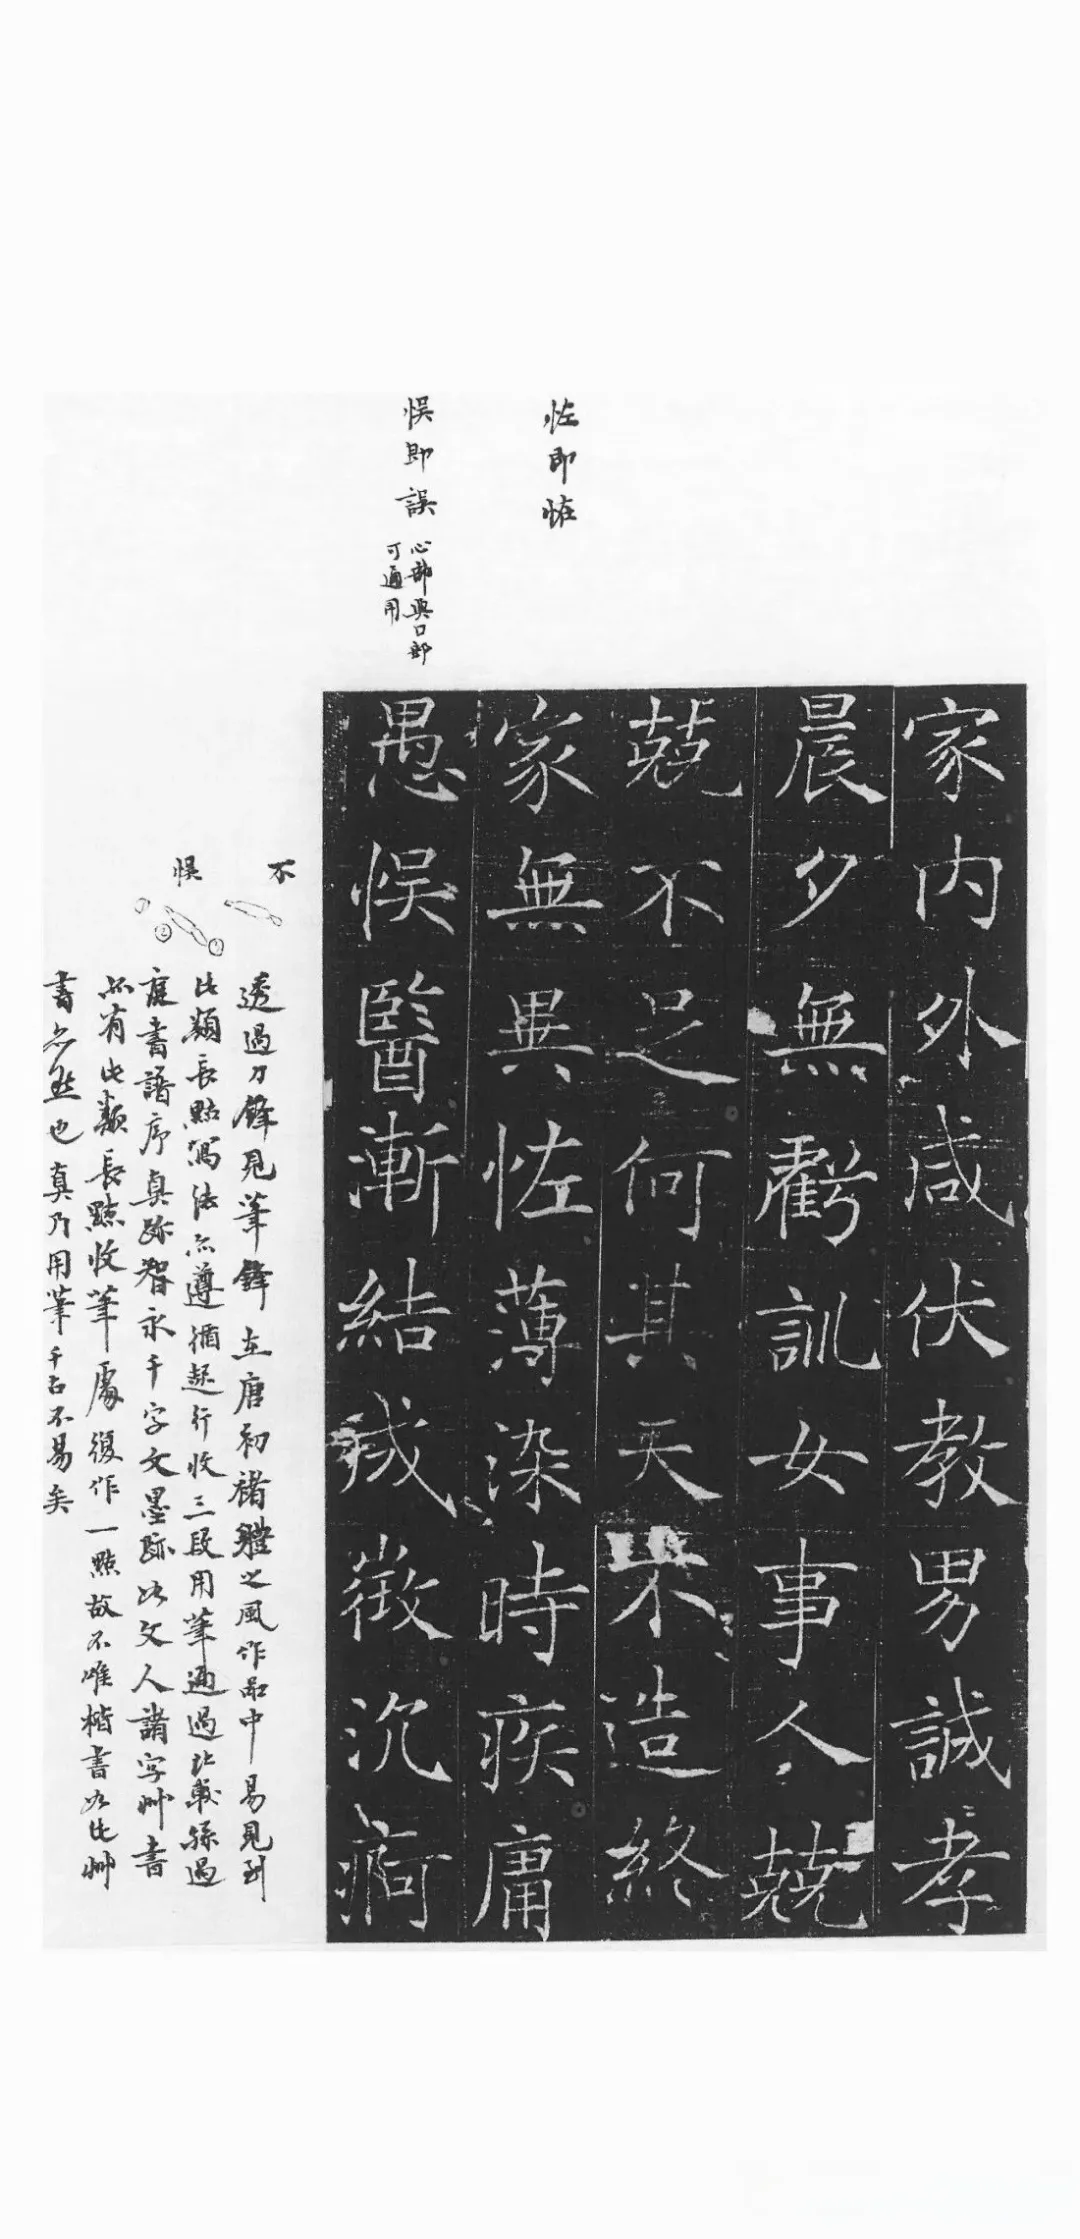 恠即怪
悞即誤
心部與口部
可通用
家内外咸伏教男誡孝
晨夕無虧訓女事人兢
兢不足何其天不造終
家無異恠薄染時疾庸
愚悞醫漸結成癥沉痾
不
悞
透過刀鋒見筆鋒 在唐初褚體之風作品中易見到
此類長點寫法亦遵循起行收三段用筆通過比較孫過
庭書譜序真跡智永千字文墨跡此文人諸字艸書
亦有此類長點收筆處復作一點故不唯楷書如此艸
書亦然也真乃用筆千古不易矣